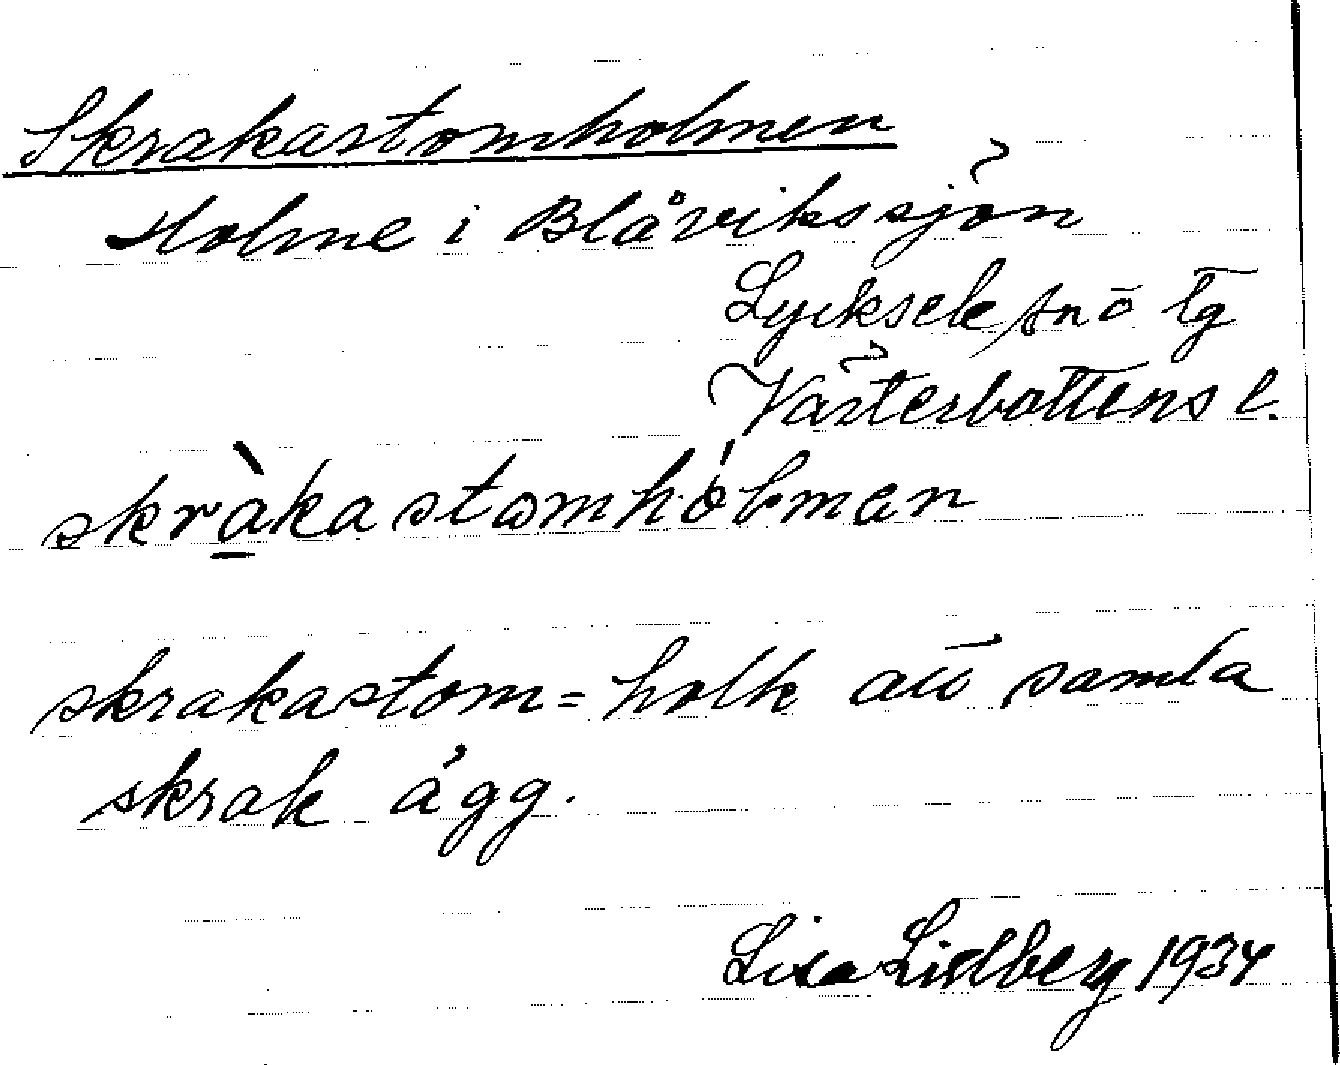 Skrakastomholmen
Holme i Blåvikssjön
Lycksele snö tg
Västerbottens l.
skràkastomhólmen
skrakastom = holk att samla
skrak ägg.
Lisa Lidberg 1934